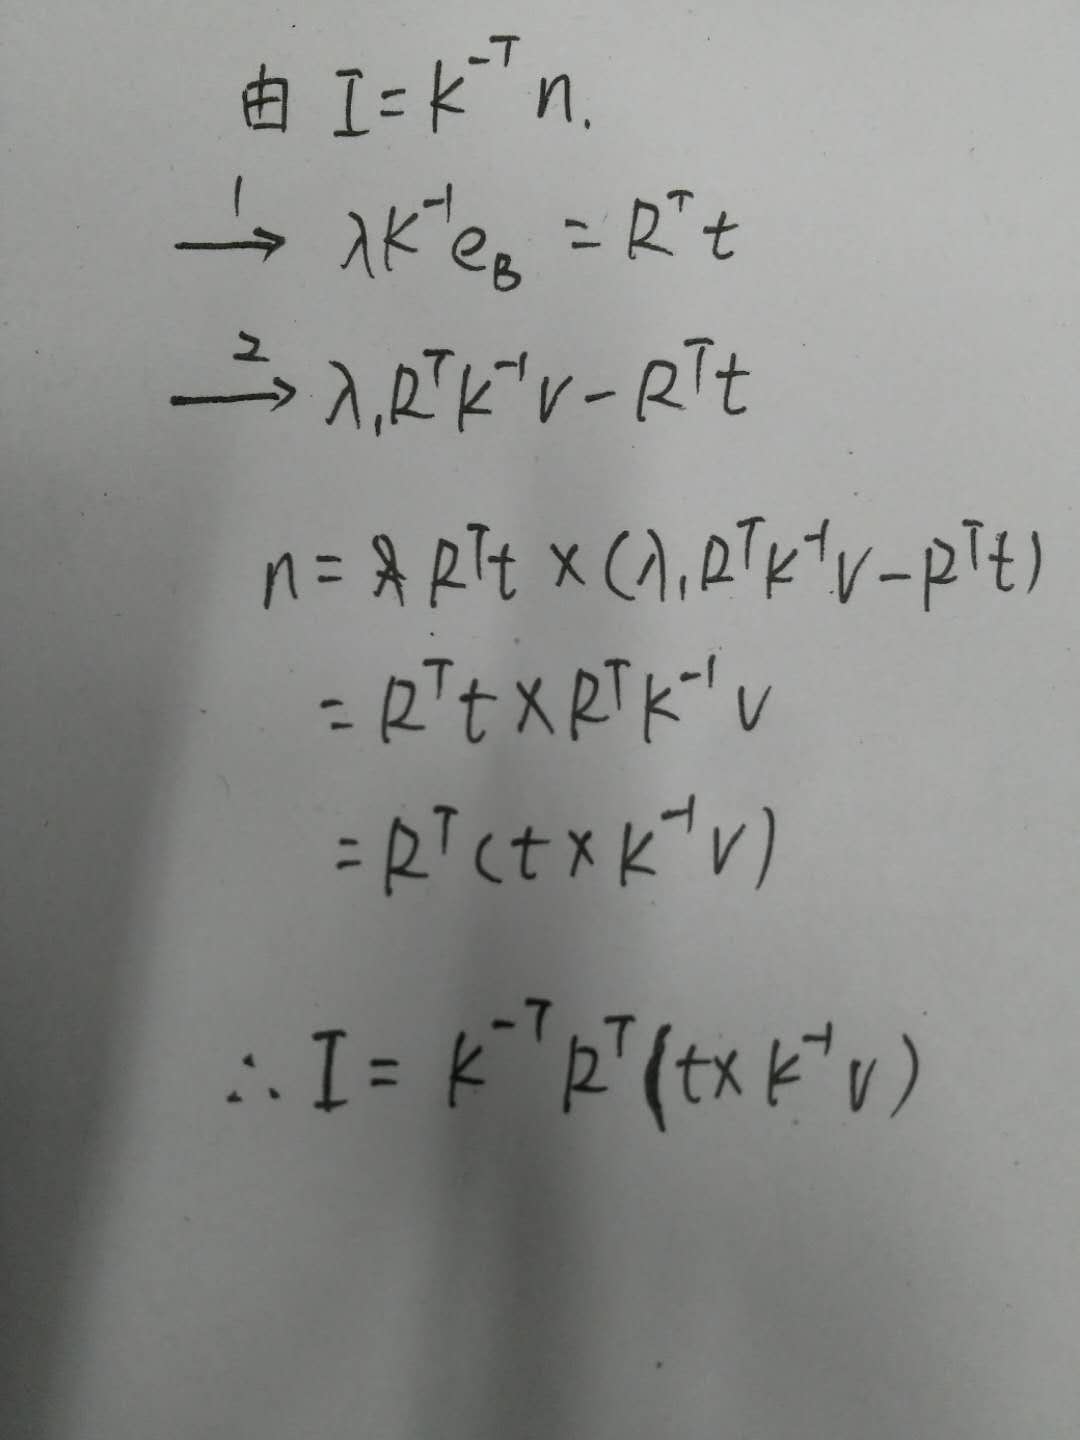 由 I = K⁻ᵀ n.
1
→ λK⁻¹e_B = Rᵀt
2
→ λ₁RᵀK⁻¹v - Rᵀt
n = Rᵀt × (λ₁RᵀK⁻¹v - Rᵀt)
= Rᵀt × RᵀK⁻¹v
= Rᵀ(t × K⁻¹v)
∴ I = K⁻ᵀRᵀ(t × K⁻¹v)